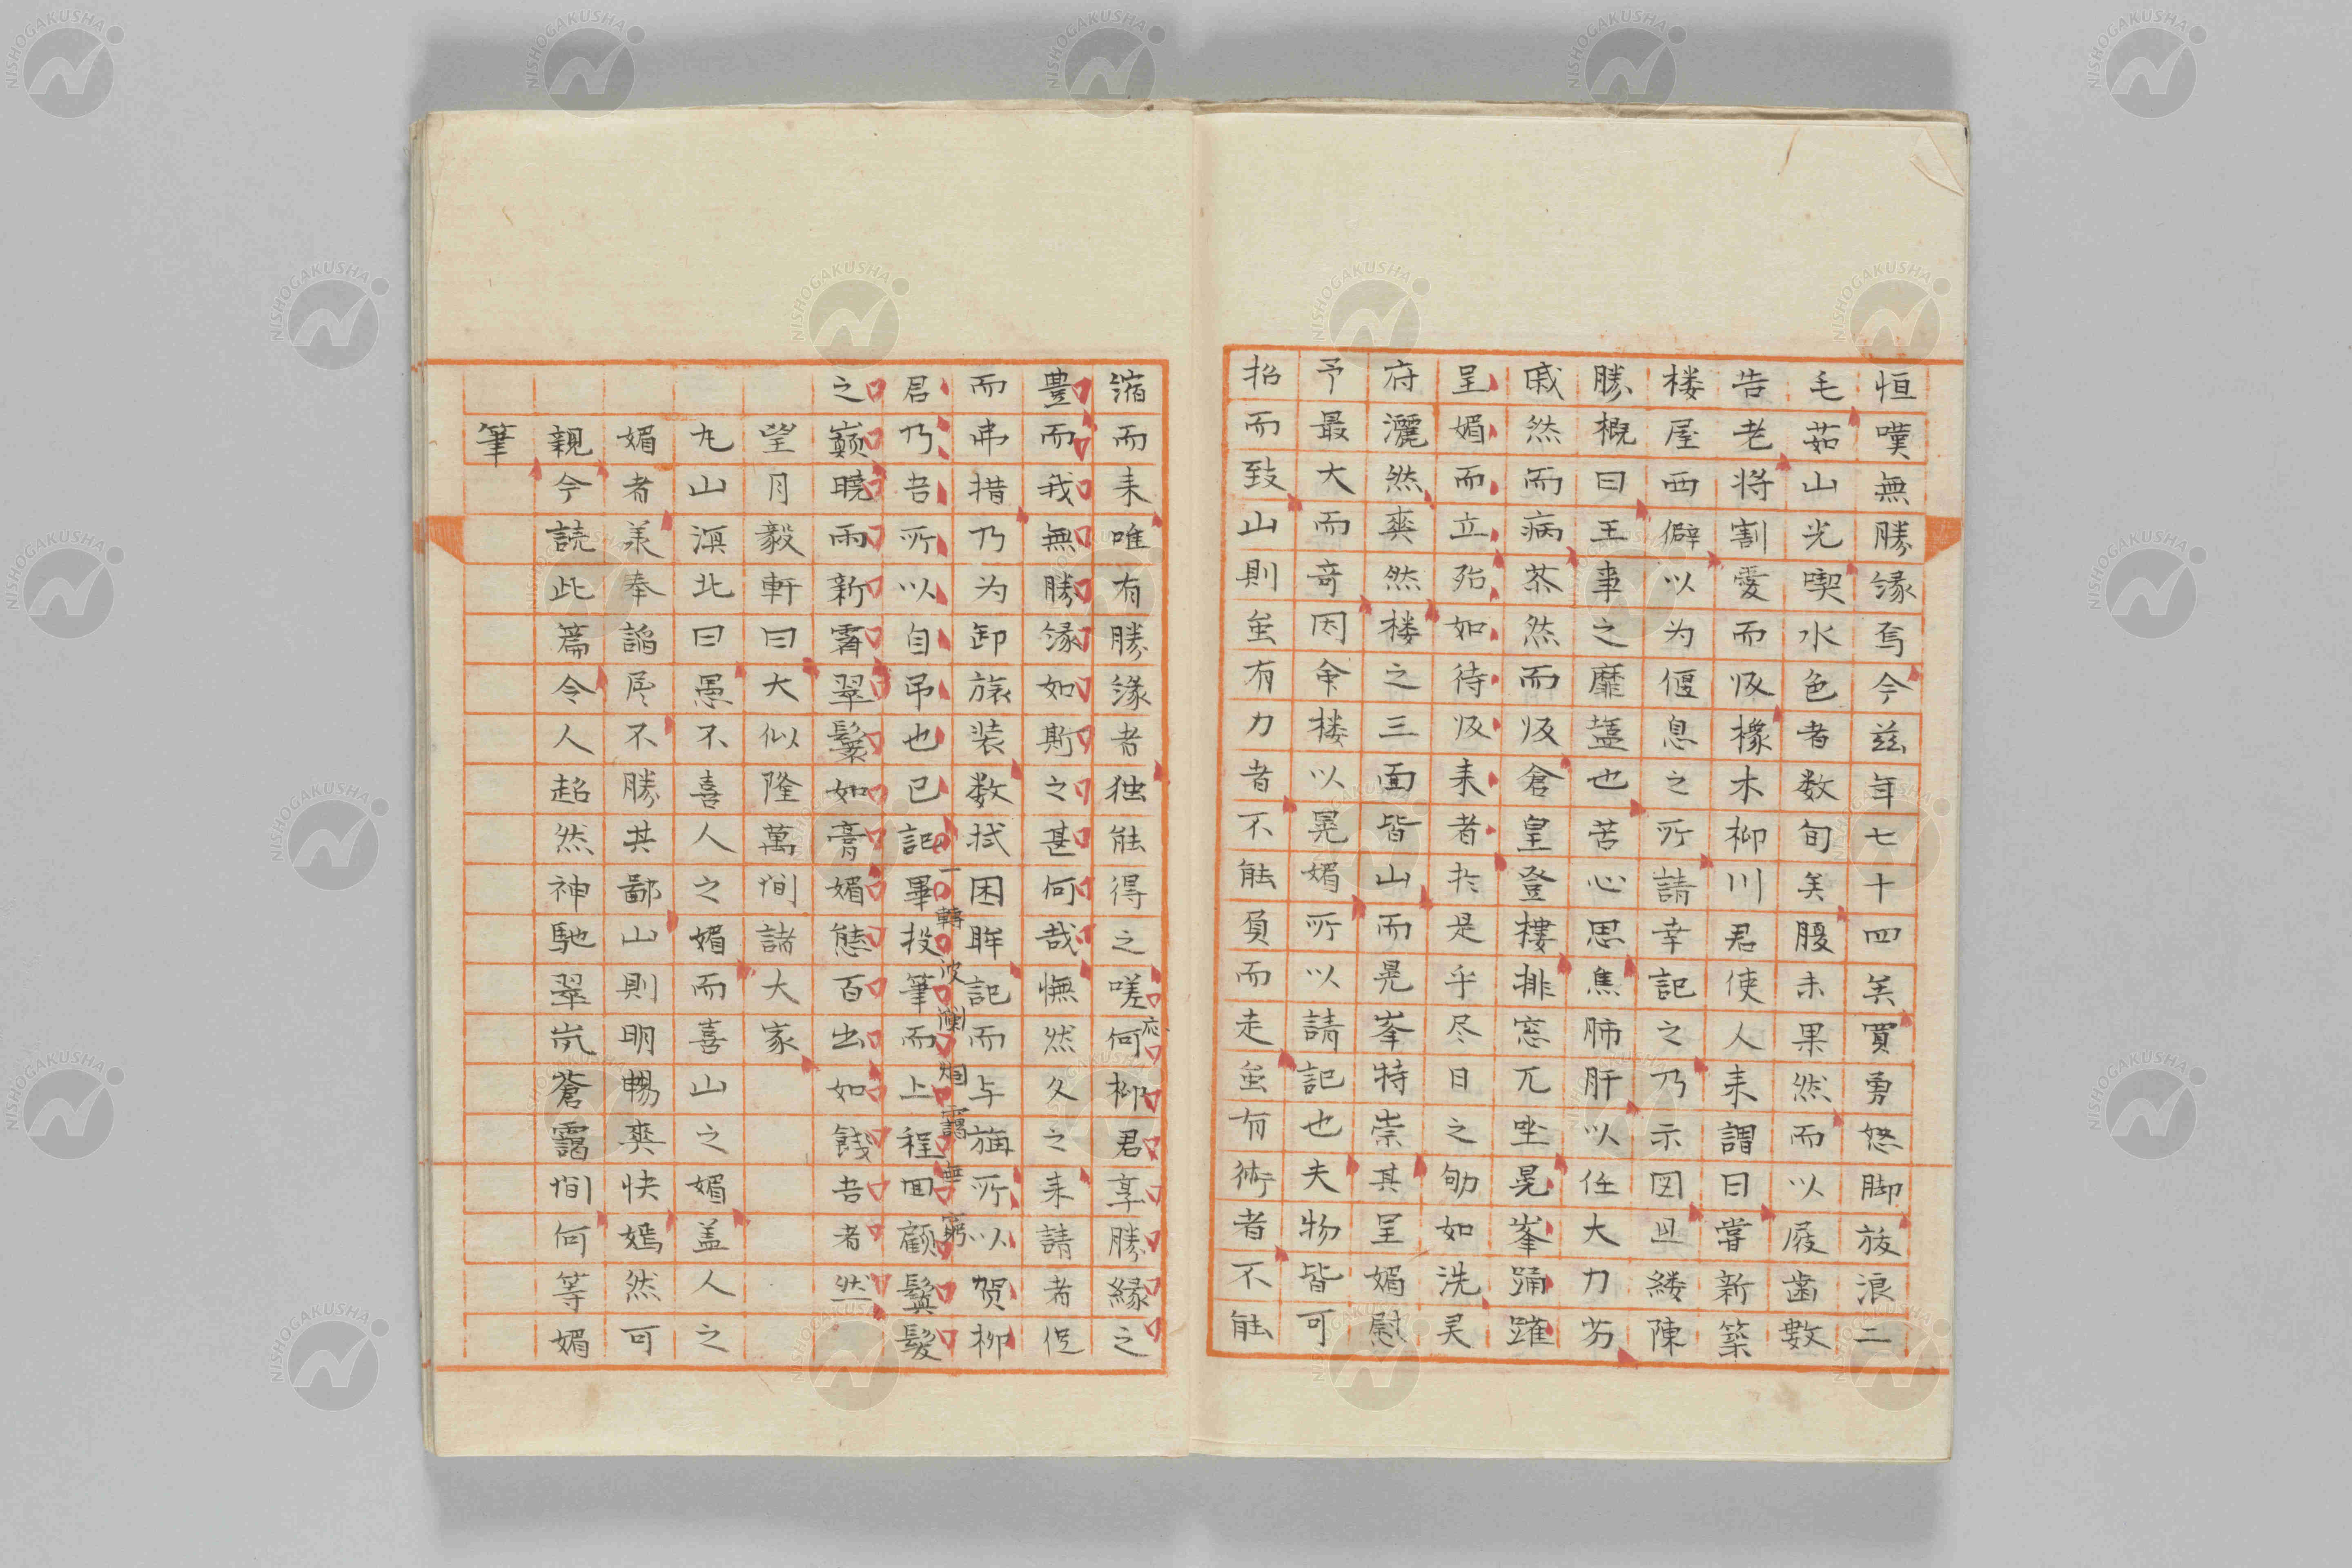 恒嘆無勝縁焉今茲年七十四矣買勇怒脚放浪二
毛茹山光喫水色者数旬矣腹未果然而以屐歯數
告老将割愛而皈橡木柳川君使人来謂曰嘗新築
楼屋西僻以为偃息之所請幸記之乃示図且縷陳
勝概曰王事之靡盬也苦心思焦肺肝以任大力労
戚然而病苶然而皈倉皇登樓排窓兀坐晃峯踊躍
呈媚而立殆如待皈来者於是乎尽日之劬如洗灵
府灑然爽然楼之三面皆山而晃峯特崇其呈媚慰
予最大而奇因余楼以晃媚所以請記也夫物皆可
招而致山則虽有力者不能負而走虽有術者不能
縮而来唯有勝縁者独能得之嗟何柳君享勝縁之
豊而我無勝縁如斯之甚何哉憮然久之来請者促
而弗措乃为卸旅装数拭困眸記而与旃所以贺柳
君乃吾所以自吊也已記畢投筆而上程回顧鬟髮
之巓暁雨新霽翠鬟如膏媚態百出如餞吾者然
一轉波瀾烟靄無窮
望月毅軒曰大似隆萬間諸大家
九山漁北曰愚不喜人之媚而喜山之媚盖人之
媚者羕奉諂尽不勝其鄙山則明暢爽快嫣然可
親今読此篇令人超然神馳翠岚蒼靄間何等媚
筆